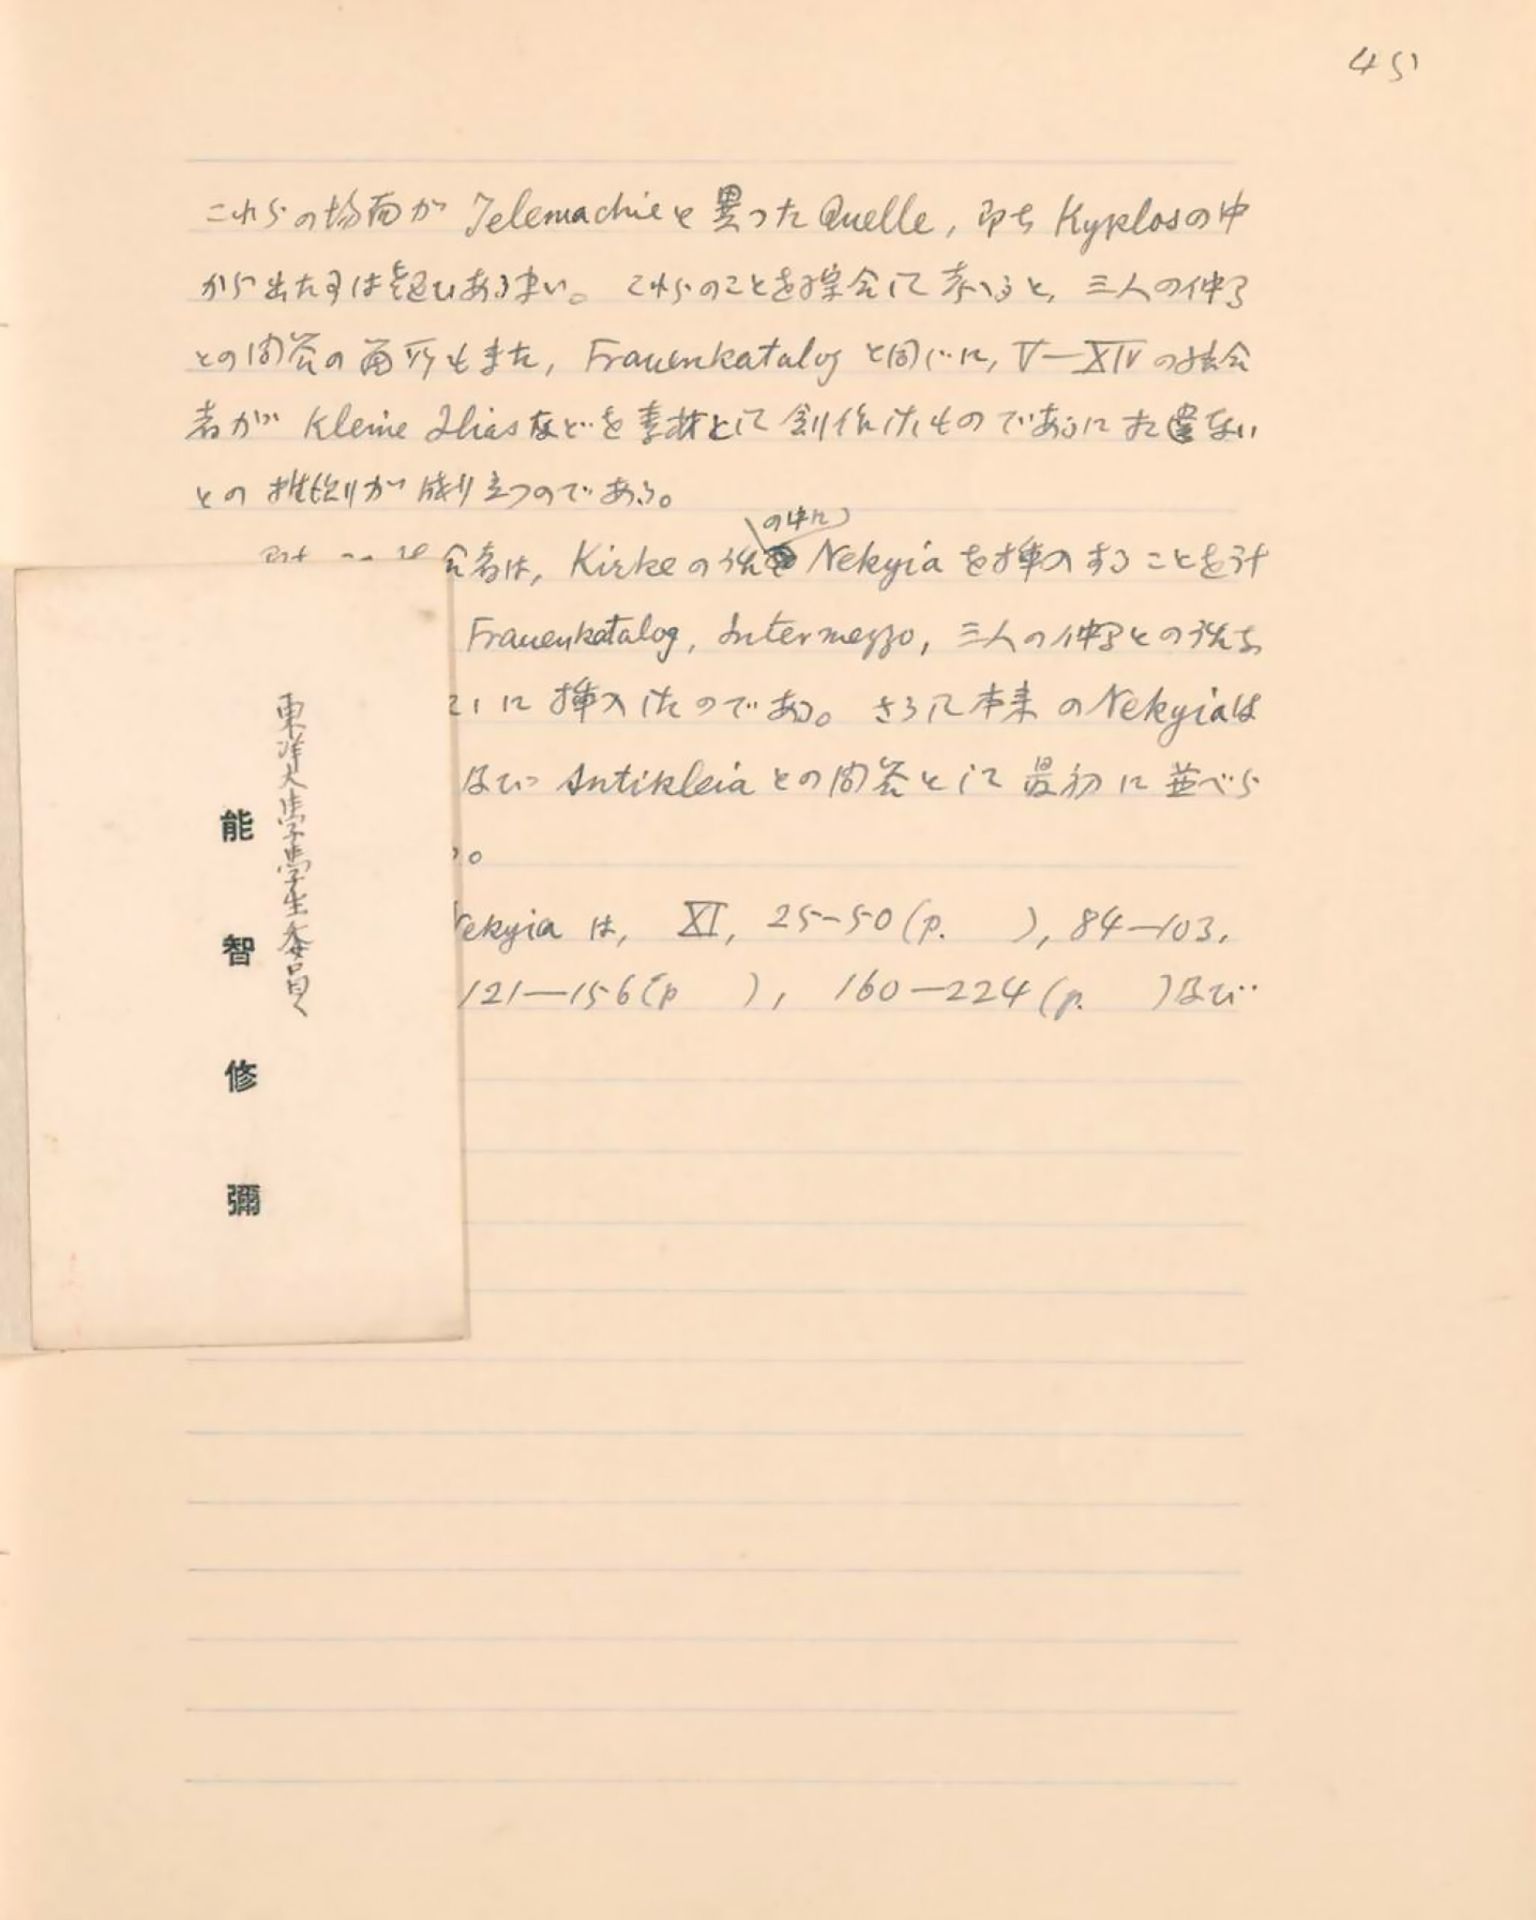 451
これらの場面が Telemachie と異った Quelle, 即ち Kyklos の中
から出た事は疑ひあるまい。これらのことを綜合して考へると, 三人の伴侶
との問答の箇所もまた, Frauenkatalog と同じに, V—XIV の
者が Kleine Ilias などを素材として創作したものであるに相違ない
との推測が成り立つのである。
の中に
者は, Kirke の話 Nekyia を挿入することを計
Frauenkatalog, Intermezzo, 三人の伴侶との
に挿入したのである。さうして本来の Nekyia は
及び Antikleia との問答として最初に並べら
。
Nekyia は, XI, 25—50 (p. ), 84—103,
121—156 (p ), 160—224 (p. ) 及び
東洋大学学生委員
能智修彌